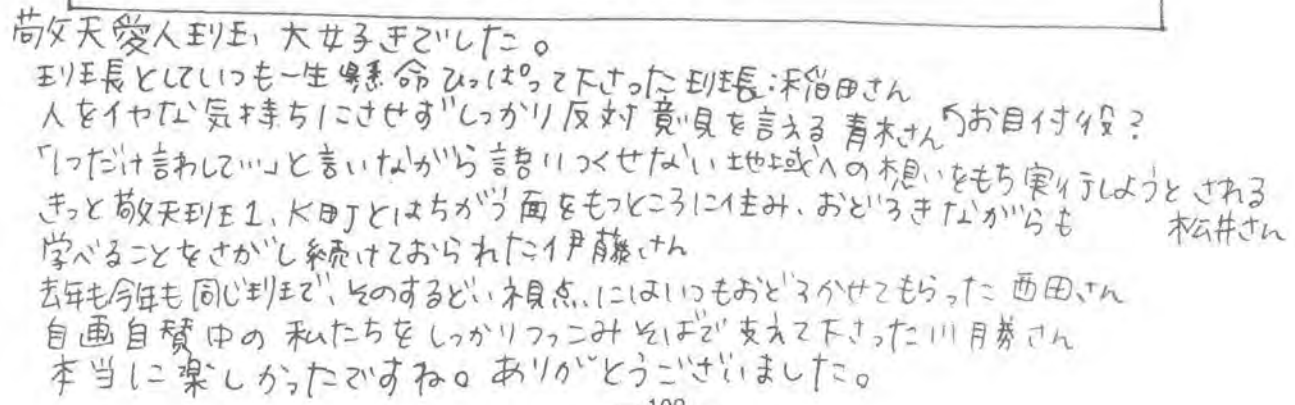 敬天愛人班、大好きでした。
班長としていつも一生懸命ひっぱって下さった班長:稲田さん
人をイヤな気持ちにさせずしっかり反対意見を言える青木さん
↰お目付役?
「1つだけ言わして…」と言いながら語りつくせない地域への想いをもち実行しようとされる
松井さん
きっと敬天班1、K町とはちがう面をもつところに住み、おどろきながらも
学べることをさがし続けておられた伊藤さん
去年も今年も同じ班で、そのするどい視点にはいつもおどろかせてもらった西田さん
自画自賛中の私たちをしっかりつっこみそばで支えて下さった川勝さん
本当に楽しかったですね。ありがとうございました。